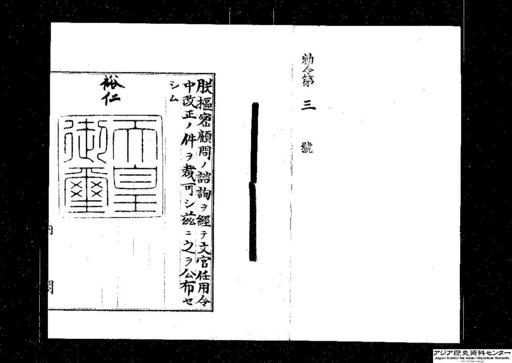 勅令第三號
朕樞密顧問ノ諮詢ヲ經テ文官任用令
中改正ノ件ヲ裁可シ茲ニ之ヲ公布セ
シム
裕仁
天皇
御璽
内閣
アジア歴史資料センター
Japan Center for Asian Historical Records